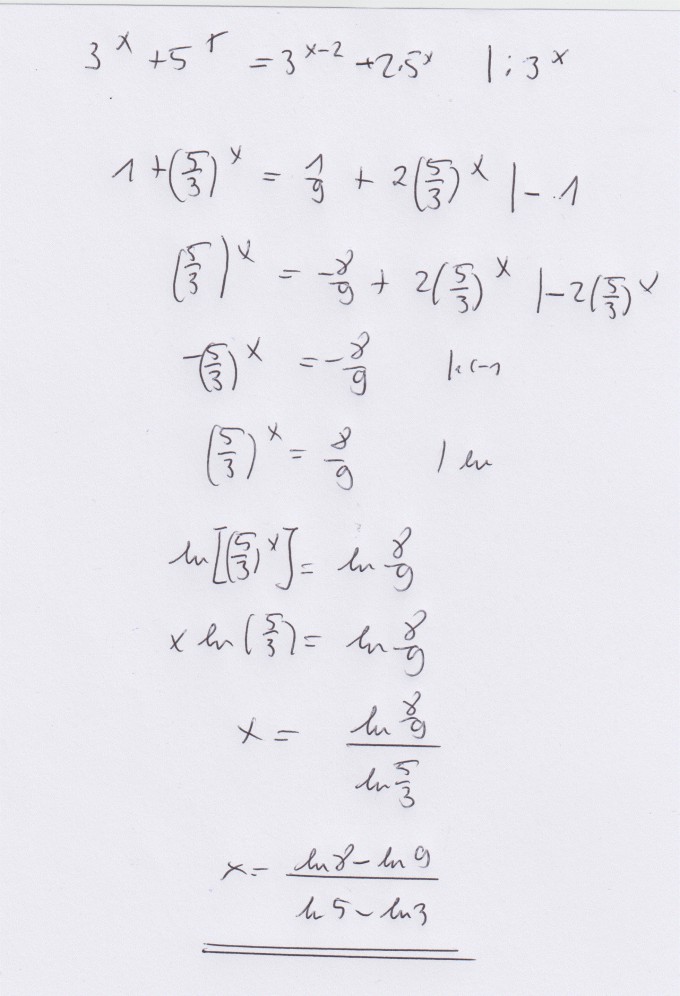 3^x + 5^x = 3^(x-2) + 2·5^x | : 3^x
1 + (5/3)^x = 1/9 + 2(5/3)^x | - 1
(5/3)^x = -8/9 + 2(5/3)^x | -2(5/3)^x
-(5/3)^x = -8/9 | ·(-1
(5/3)^x = 8/9 | ln
ln[(5/3)^x] = ln 8/9
x ln(5/3) = ln 8/9
x = (ln 8/9)/(ln 5/3)
x = (ln 8 - ln 9)/(ln 5 - ln 3)